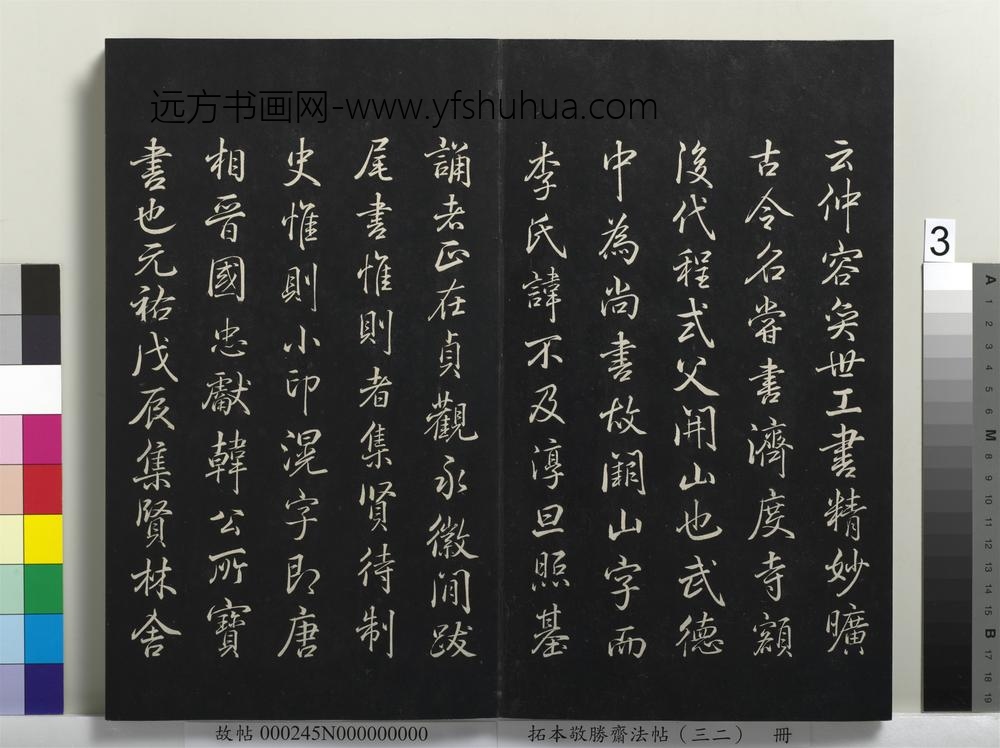 远方书画网-www.yfshuhua.com
云仲容奕世工書精妙曠
古今名嘗書濟度寺額
後代程式父開山也武德
中為尚書故闕山字而
李氏諱不及淳旦照基
誦者正在貞觀永徽間跋
尾書惟則者集賢待制
史惟則小印滉字即唐
相晉國忠獻韓公所寶
書也元祐戊辰集賢林舍
3
A
1
2
3
4
5
6
M
8
9
10
11
12
13
14
15
B
17
18
19
故帖 000245N000000000
拓本敬勝齋法帖（三二） 冊